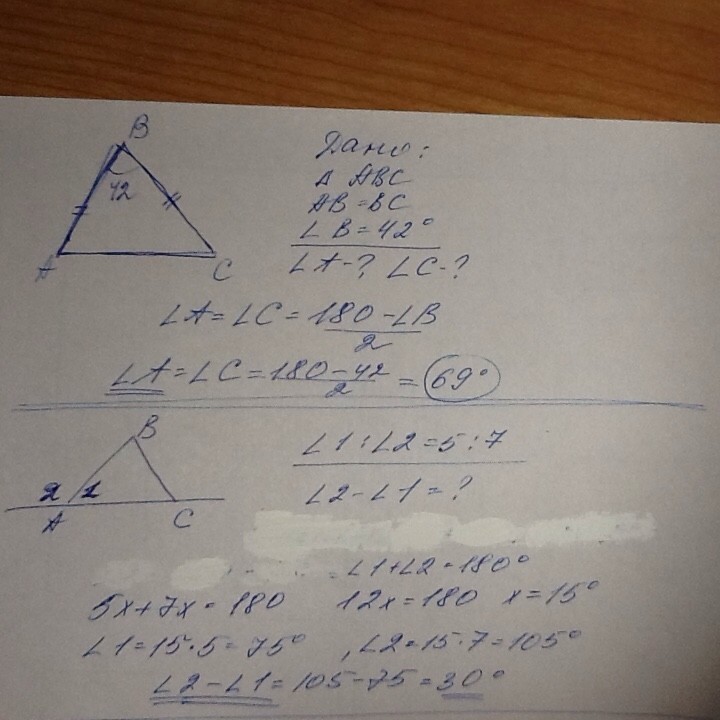 B
42
A
C
Дано:
Δ ABC
AB = BC
∠B = 42°
∠A - ? ∠C - ?
∠A = ∠C = 180 - ∠B
2
∠A = ∠C = 180 - 42 = 69°
2
B
2 1
A
C
∠1 : ∠2 = 5 : 7
∠2 - ∠1 = ?
∠1 + ∠2 = 180°
5x + 7x = 180 12x = 180 x = 15°
∠1 = 15 · 5 = 75° , ∠2 = 15 · 7 = 105°
∠2 - ∠1 = 105 - 75 = 30°